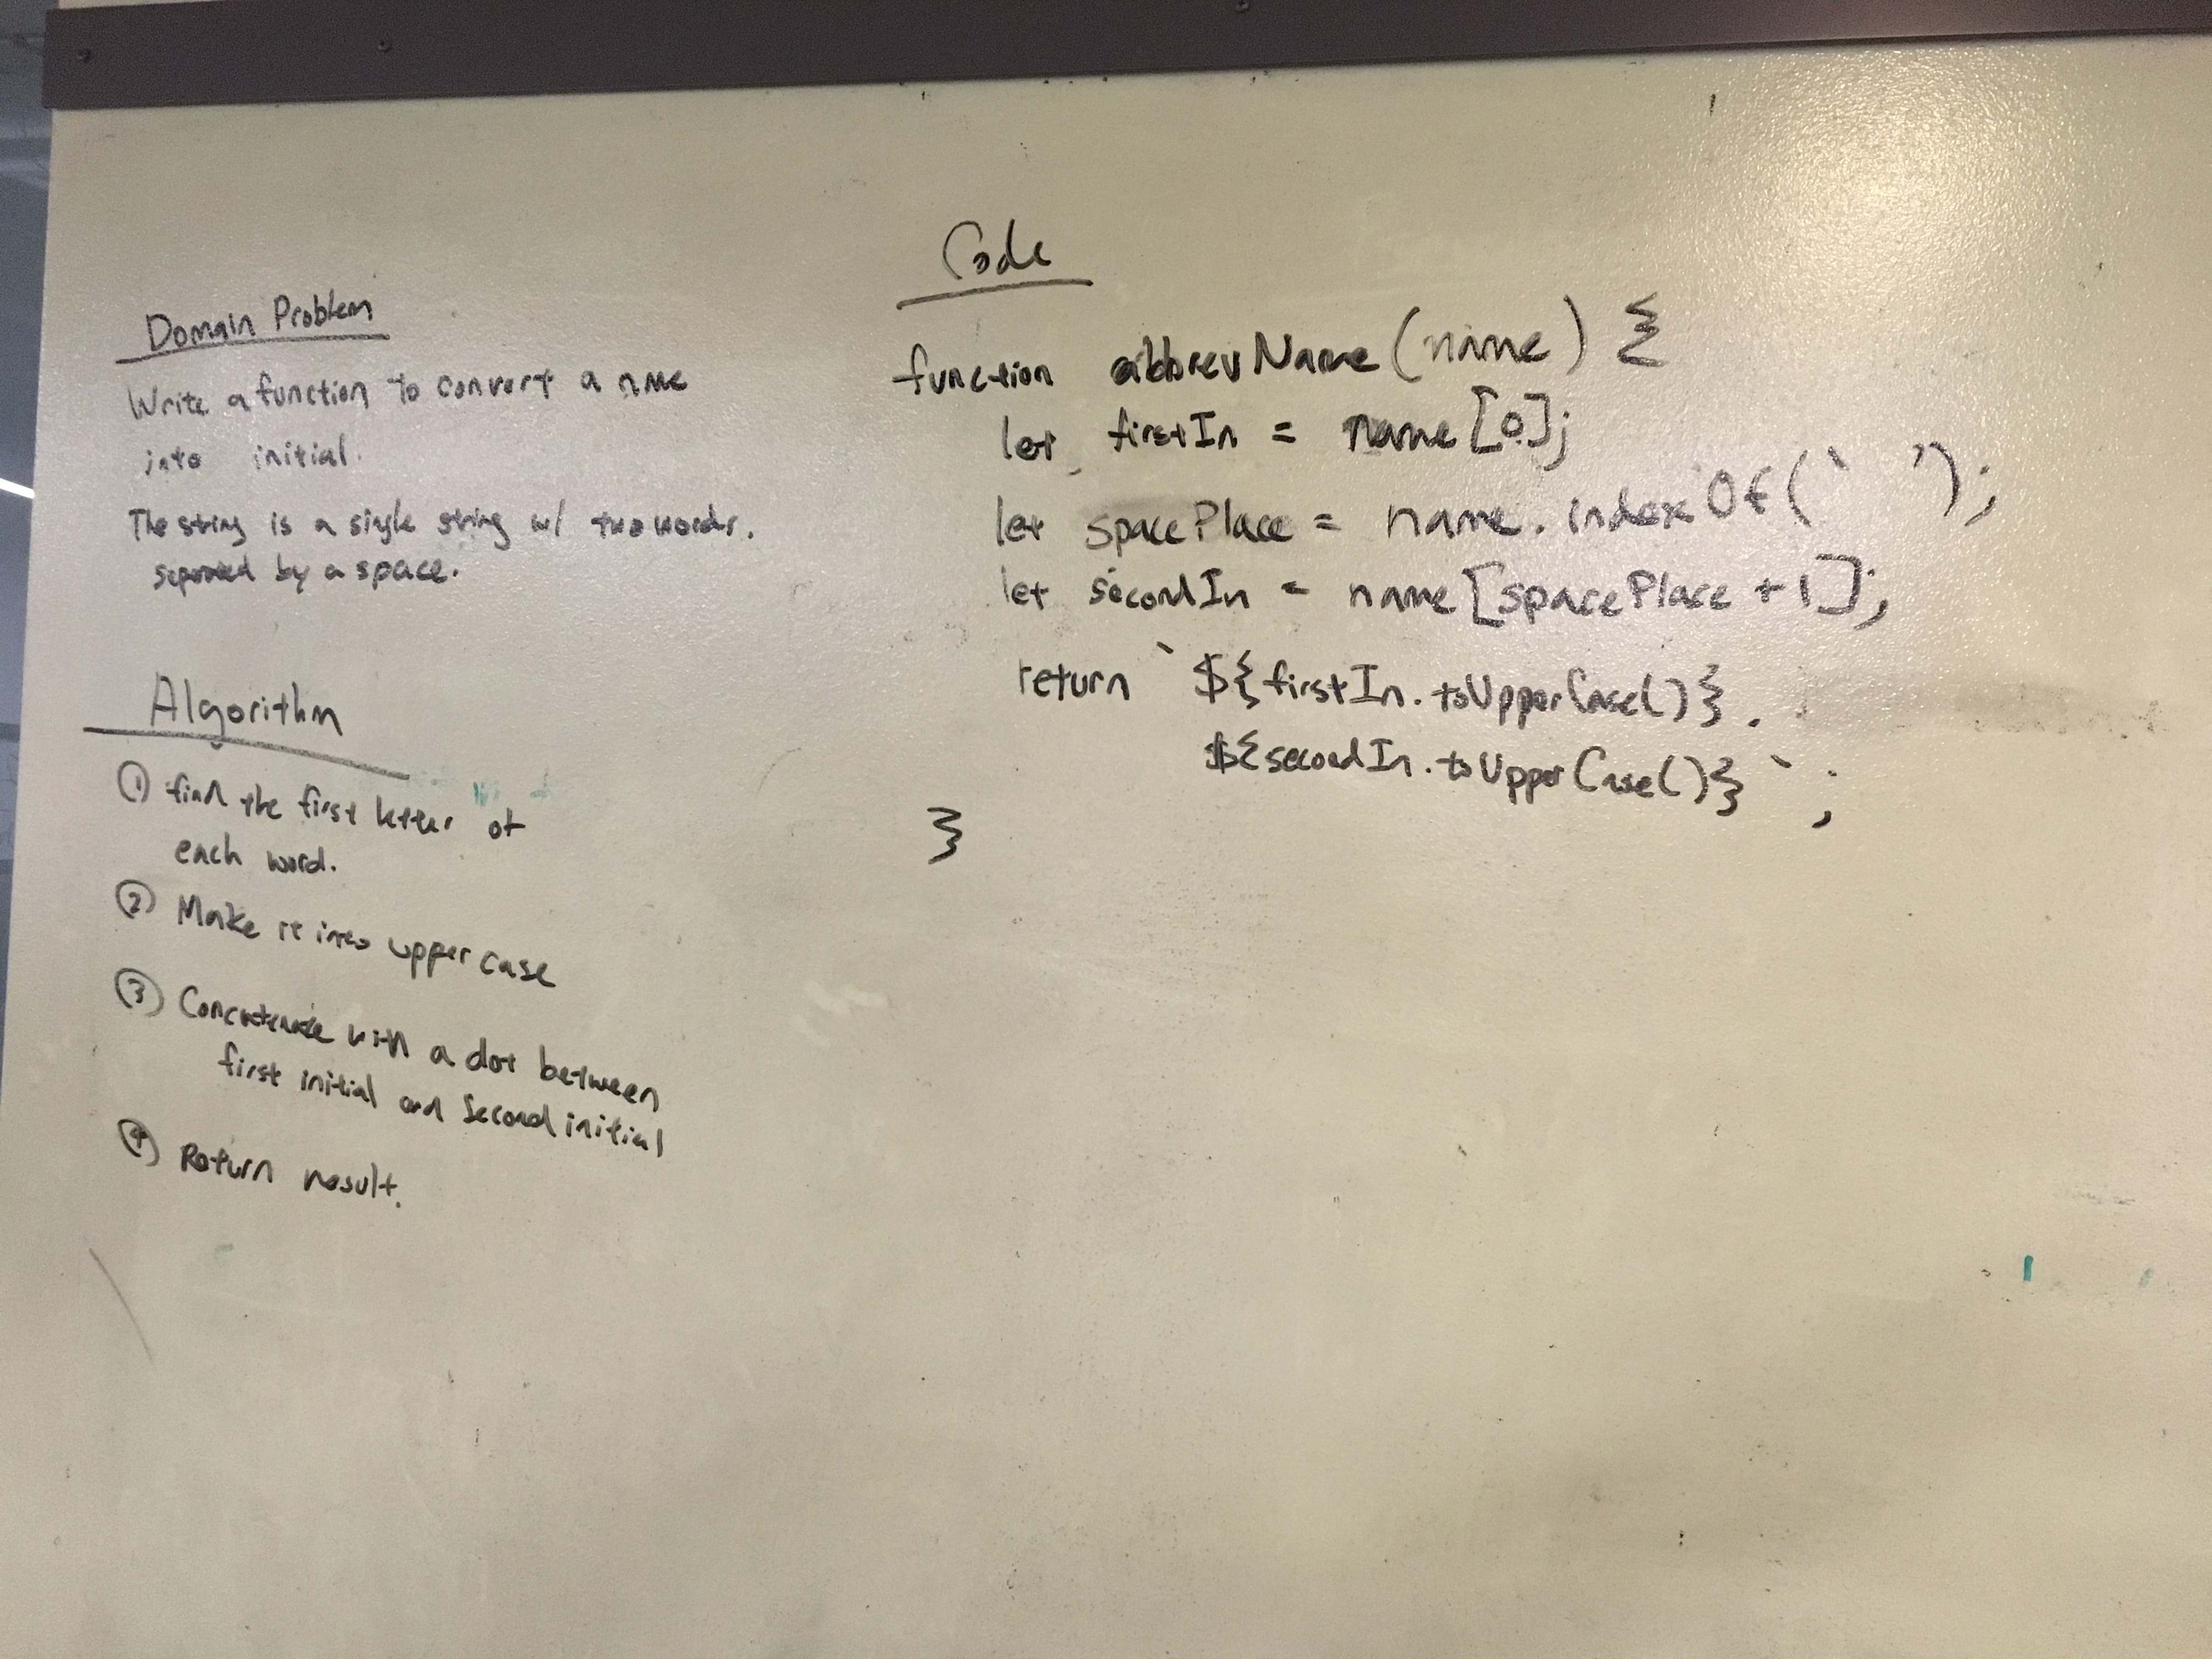 Domain Problem
Write a function to convert a name
into initial.
The string is a single string w/ two words.
separated by a space.
Algorithm
① find the first letter of
each word.
② Make it into upper case
③ Concatenate with a dot between
first initial and second initial
④ Return result.
Code
function abbrevName(name) {
let firstIn = name[0];
let spacePlace = name.indexOf(` ');
let secondIn = name[spacePlace +1];
return `${firstIn.toUpperCase()}.
${secondIn.toUpperCase()}`;
}